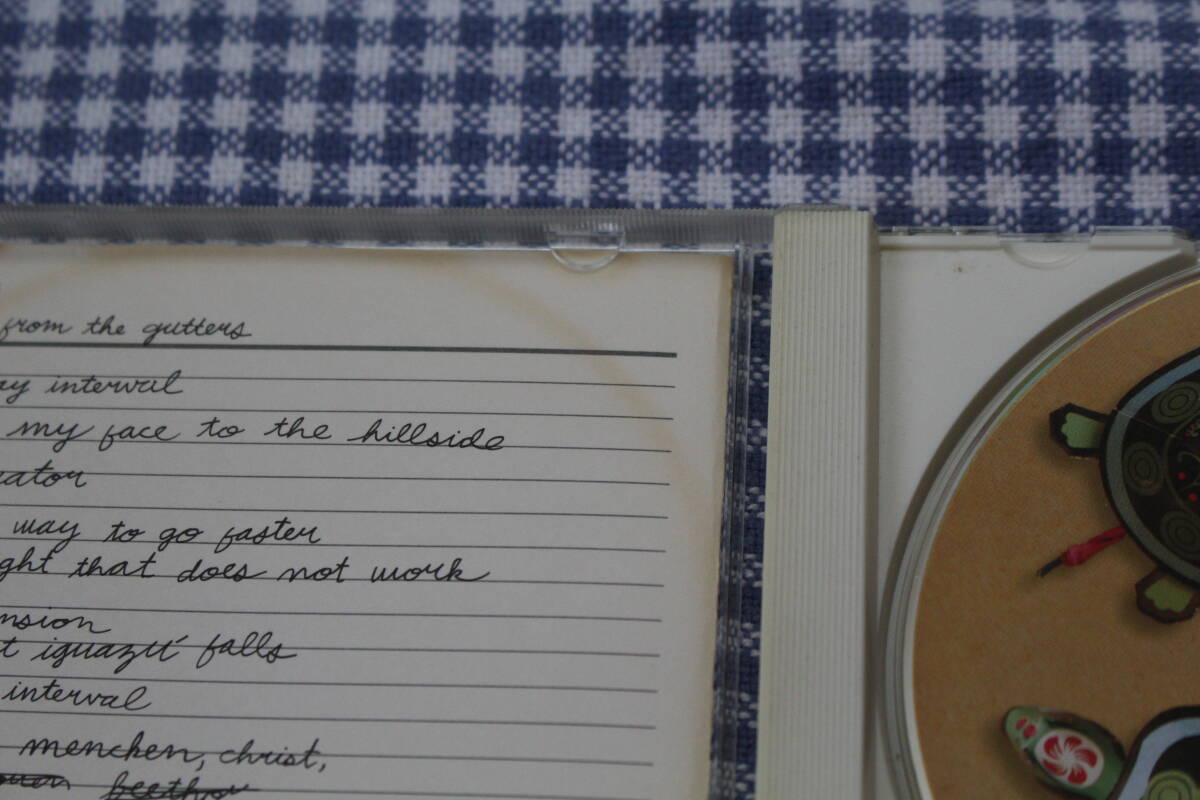 from the gutters
ay interval
my face to the hillside
ator
way to go faster
ght that does not work
nsion
t iguazú falls
interval
menchen, christ,